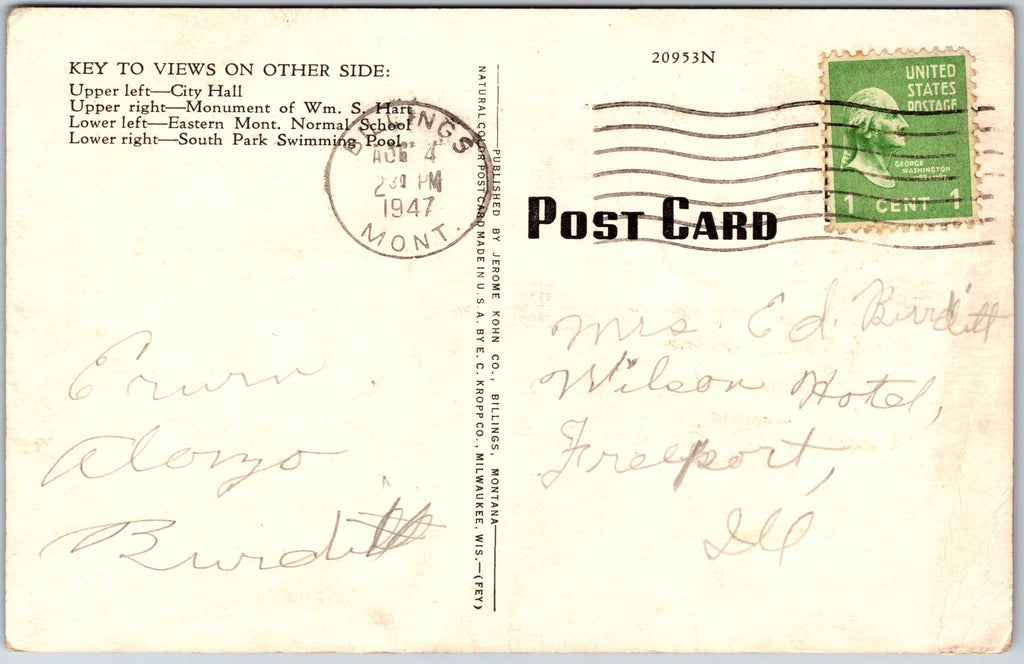 KEY TO VIEWS ON OTHER SIDE:
Upper left—City Hall
Upper right—Monument of Wm. S. Hart
Lower left—Eastern Mont. Normal School
Lower right—South Park Swimming Pool
BILLINGS
AUG 4
2 30 PM
1947
MONT.
Erwin
Alonzo
Burditt
PUBLISHED BY JEROME KOHN CO., BILLINGS, MONTANA
NATURAL COLOR POST CARD MADE IN U.S.A. BY E. C. KROPP CO., MILWAUKEE, WIS.—(FEY)
20953N
UNITED
STATES
POSTAGE
GEORGE
WASHINGTON
1 CENT 1
POST CARD
Mrs. Ed. Burditt
Wilson Hotel,
Freeport,
Ill